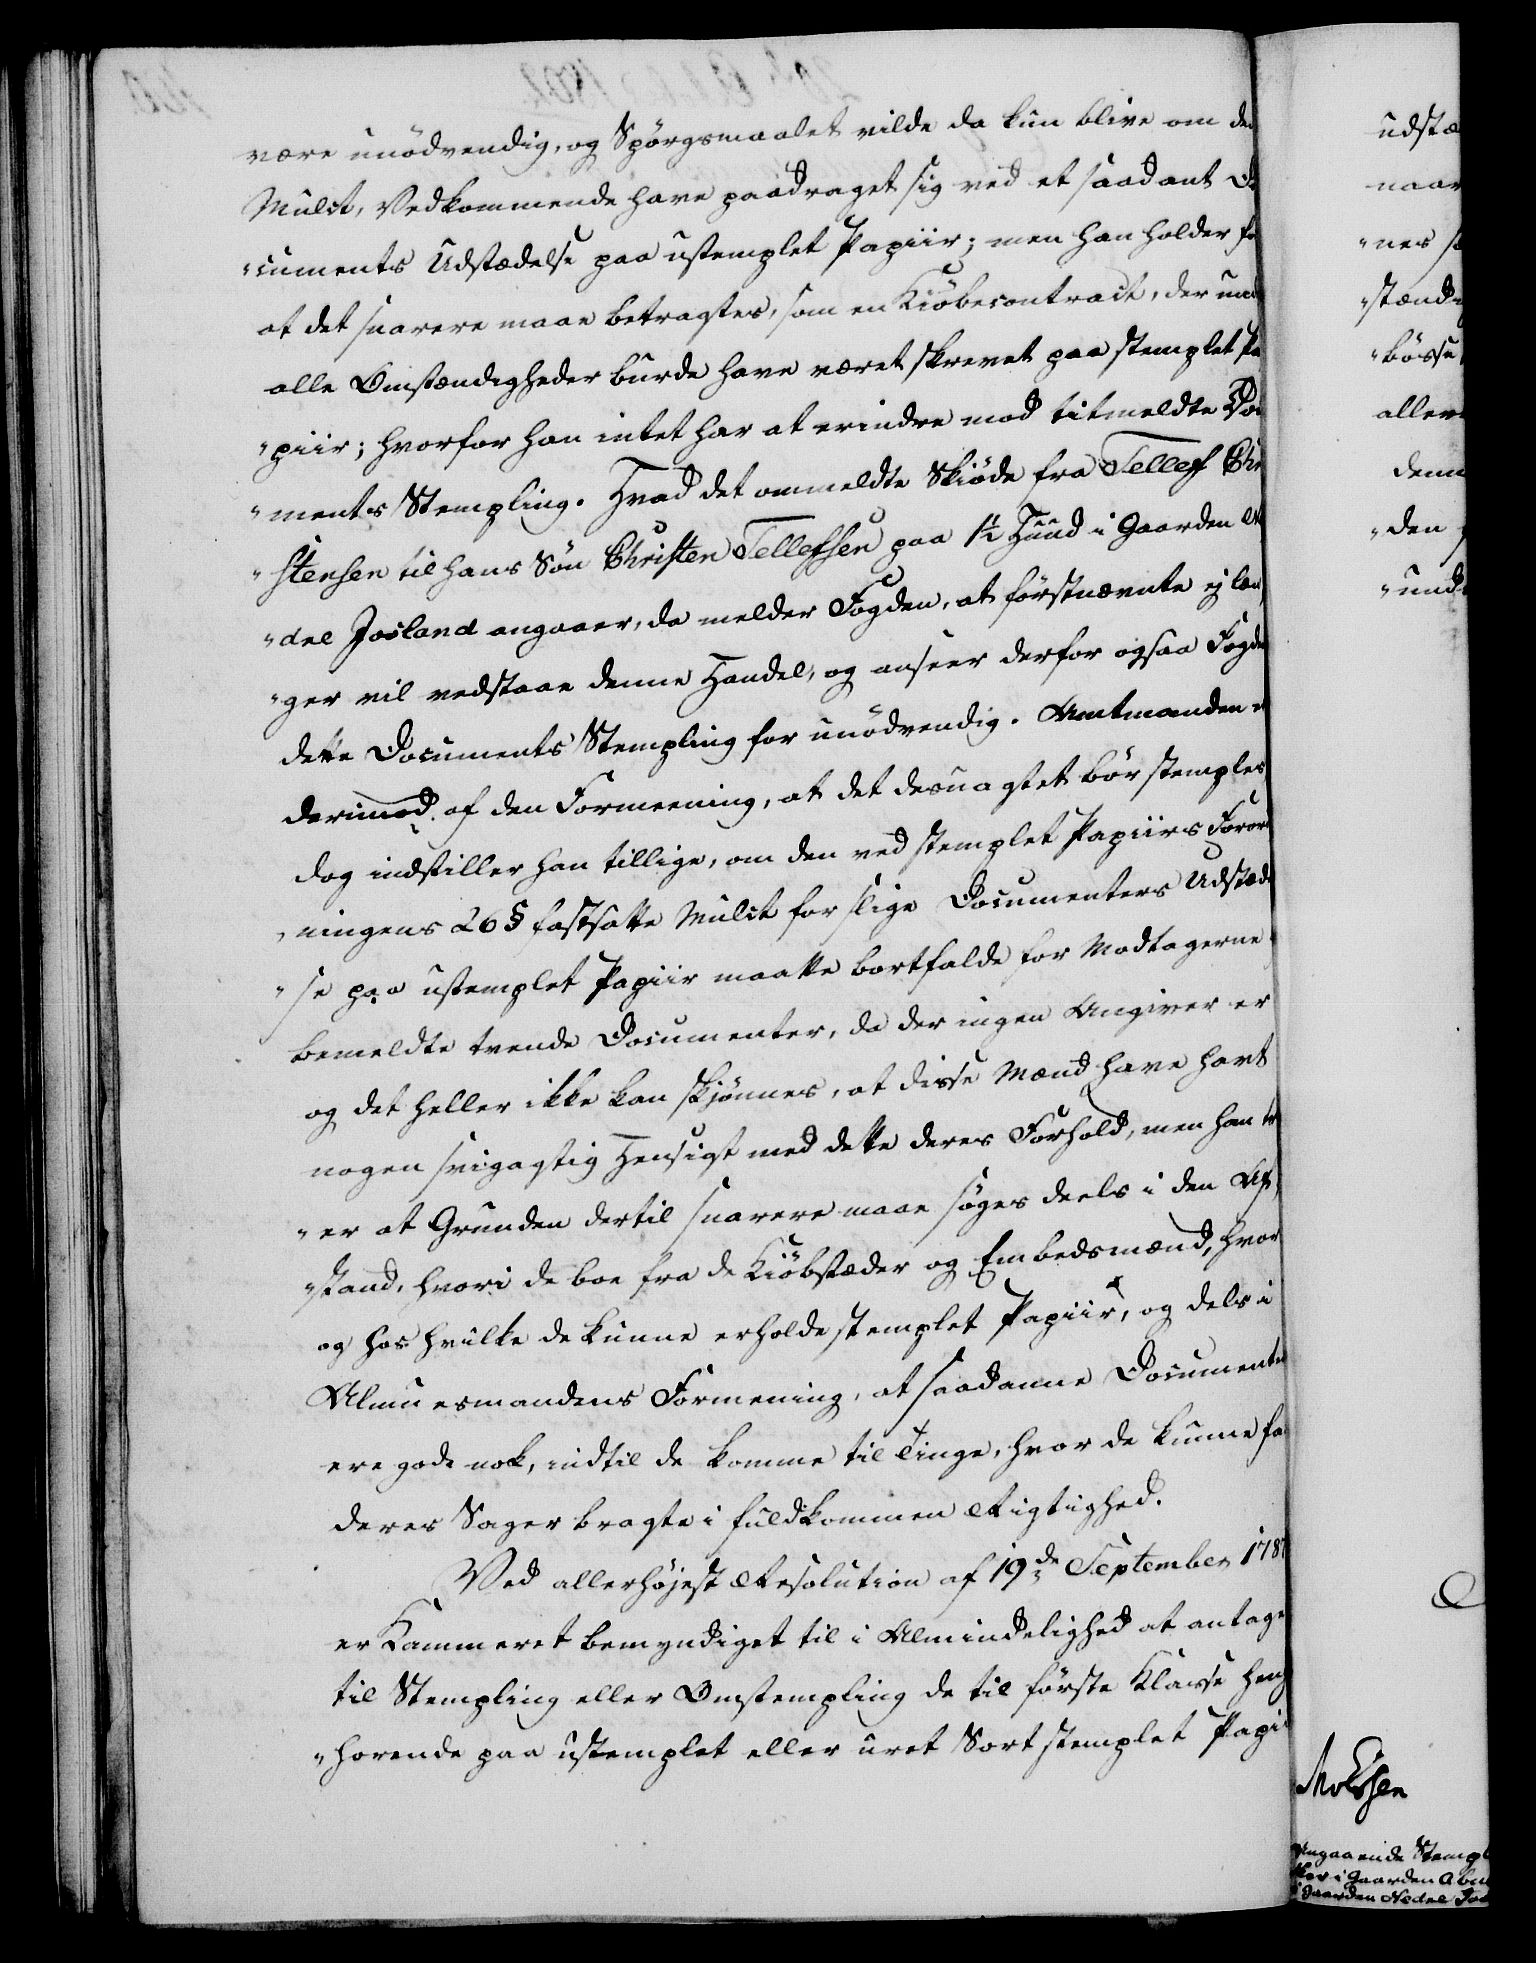 være unödvendig, og Spörgsmaalet vilde da kun blive om de
Mulct, Vedkommende have paadraget sig ved et saadant D
"cuments Udstædelse paa ustemplet Papiir; men han holder
at det snarere maae betragtes, som en Kiöbecontract, der
alle Omstændigheder burde have været skrevet paa stemplet Pa
"piir; hvorfor han intet har at erindre mod titmeldte Do
"ments Stempling. Hvad det ommeldte Skiöde fra Tellef Chr
"stensen til hans Sön Christen Tellefsen paa 1/2 Huud i Gaarden
"dre Josland angaaer, da melder Fogden, at förstnævnte ej læn
"ger vil vedstaae denne Handel, og anseer derfor ogsaa Fogde
dette Documents Stempling for unödvendig. Amtmanden
derimod af den Formeening, at det desuagtet bör stemples
dog indstiller han tillige, om den ved stemplet Papiirs Foror
"ningens 26 § fastsatte Mulct for slige Documenters Udstæde
"se paa ustemplet Papiir maatte bortfalde for Modtagerne
bemeldte tvende Documenter, da der ingen Angiver er
og det heller ikke kan skjönnes, at disse Mænd have havt
nogen svigagtig Hensigt med dette deres Forhold, men han tr
"er at Grunden dertil snarere maae söges deels i den Af
"stand, hvori de boe fra de Kiöbstæder og Embedsmænd, hvor
og hos hvilke de kunne erholde stemplet Papiir, og dels i
Almuesmandens Formening, at saadanne Documente
ere gode nok, indtil de komme til Tinge, hvor de kunne faa
deres Sager bragte i fuldkommen Rigtighed.
Ved allerhöjest Resolution af 19de September 178
er Kammeret bemyndiget til i Almindelighed at antage
til Stempling eller Omstempling de til förste Klasse hen
"horende paa ustemplet eller uret Sort stemplet Papi
udstæ
naar
"nes
"stænd
"bösse
aller
denn
"den
"und
Angaaende Stempl
i Gaarden
Gaarden Nedre Jos